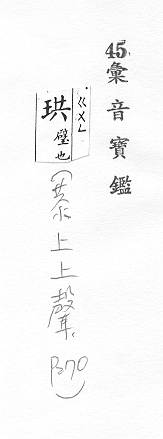 45. 彙音寶鑑
ㄍㄨㄥ
珙 璧也
(恭上上聲 P.70)